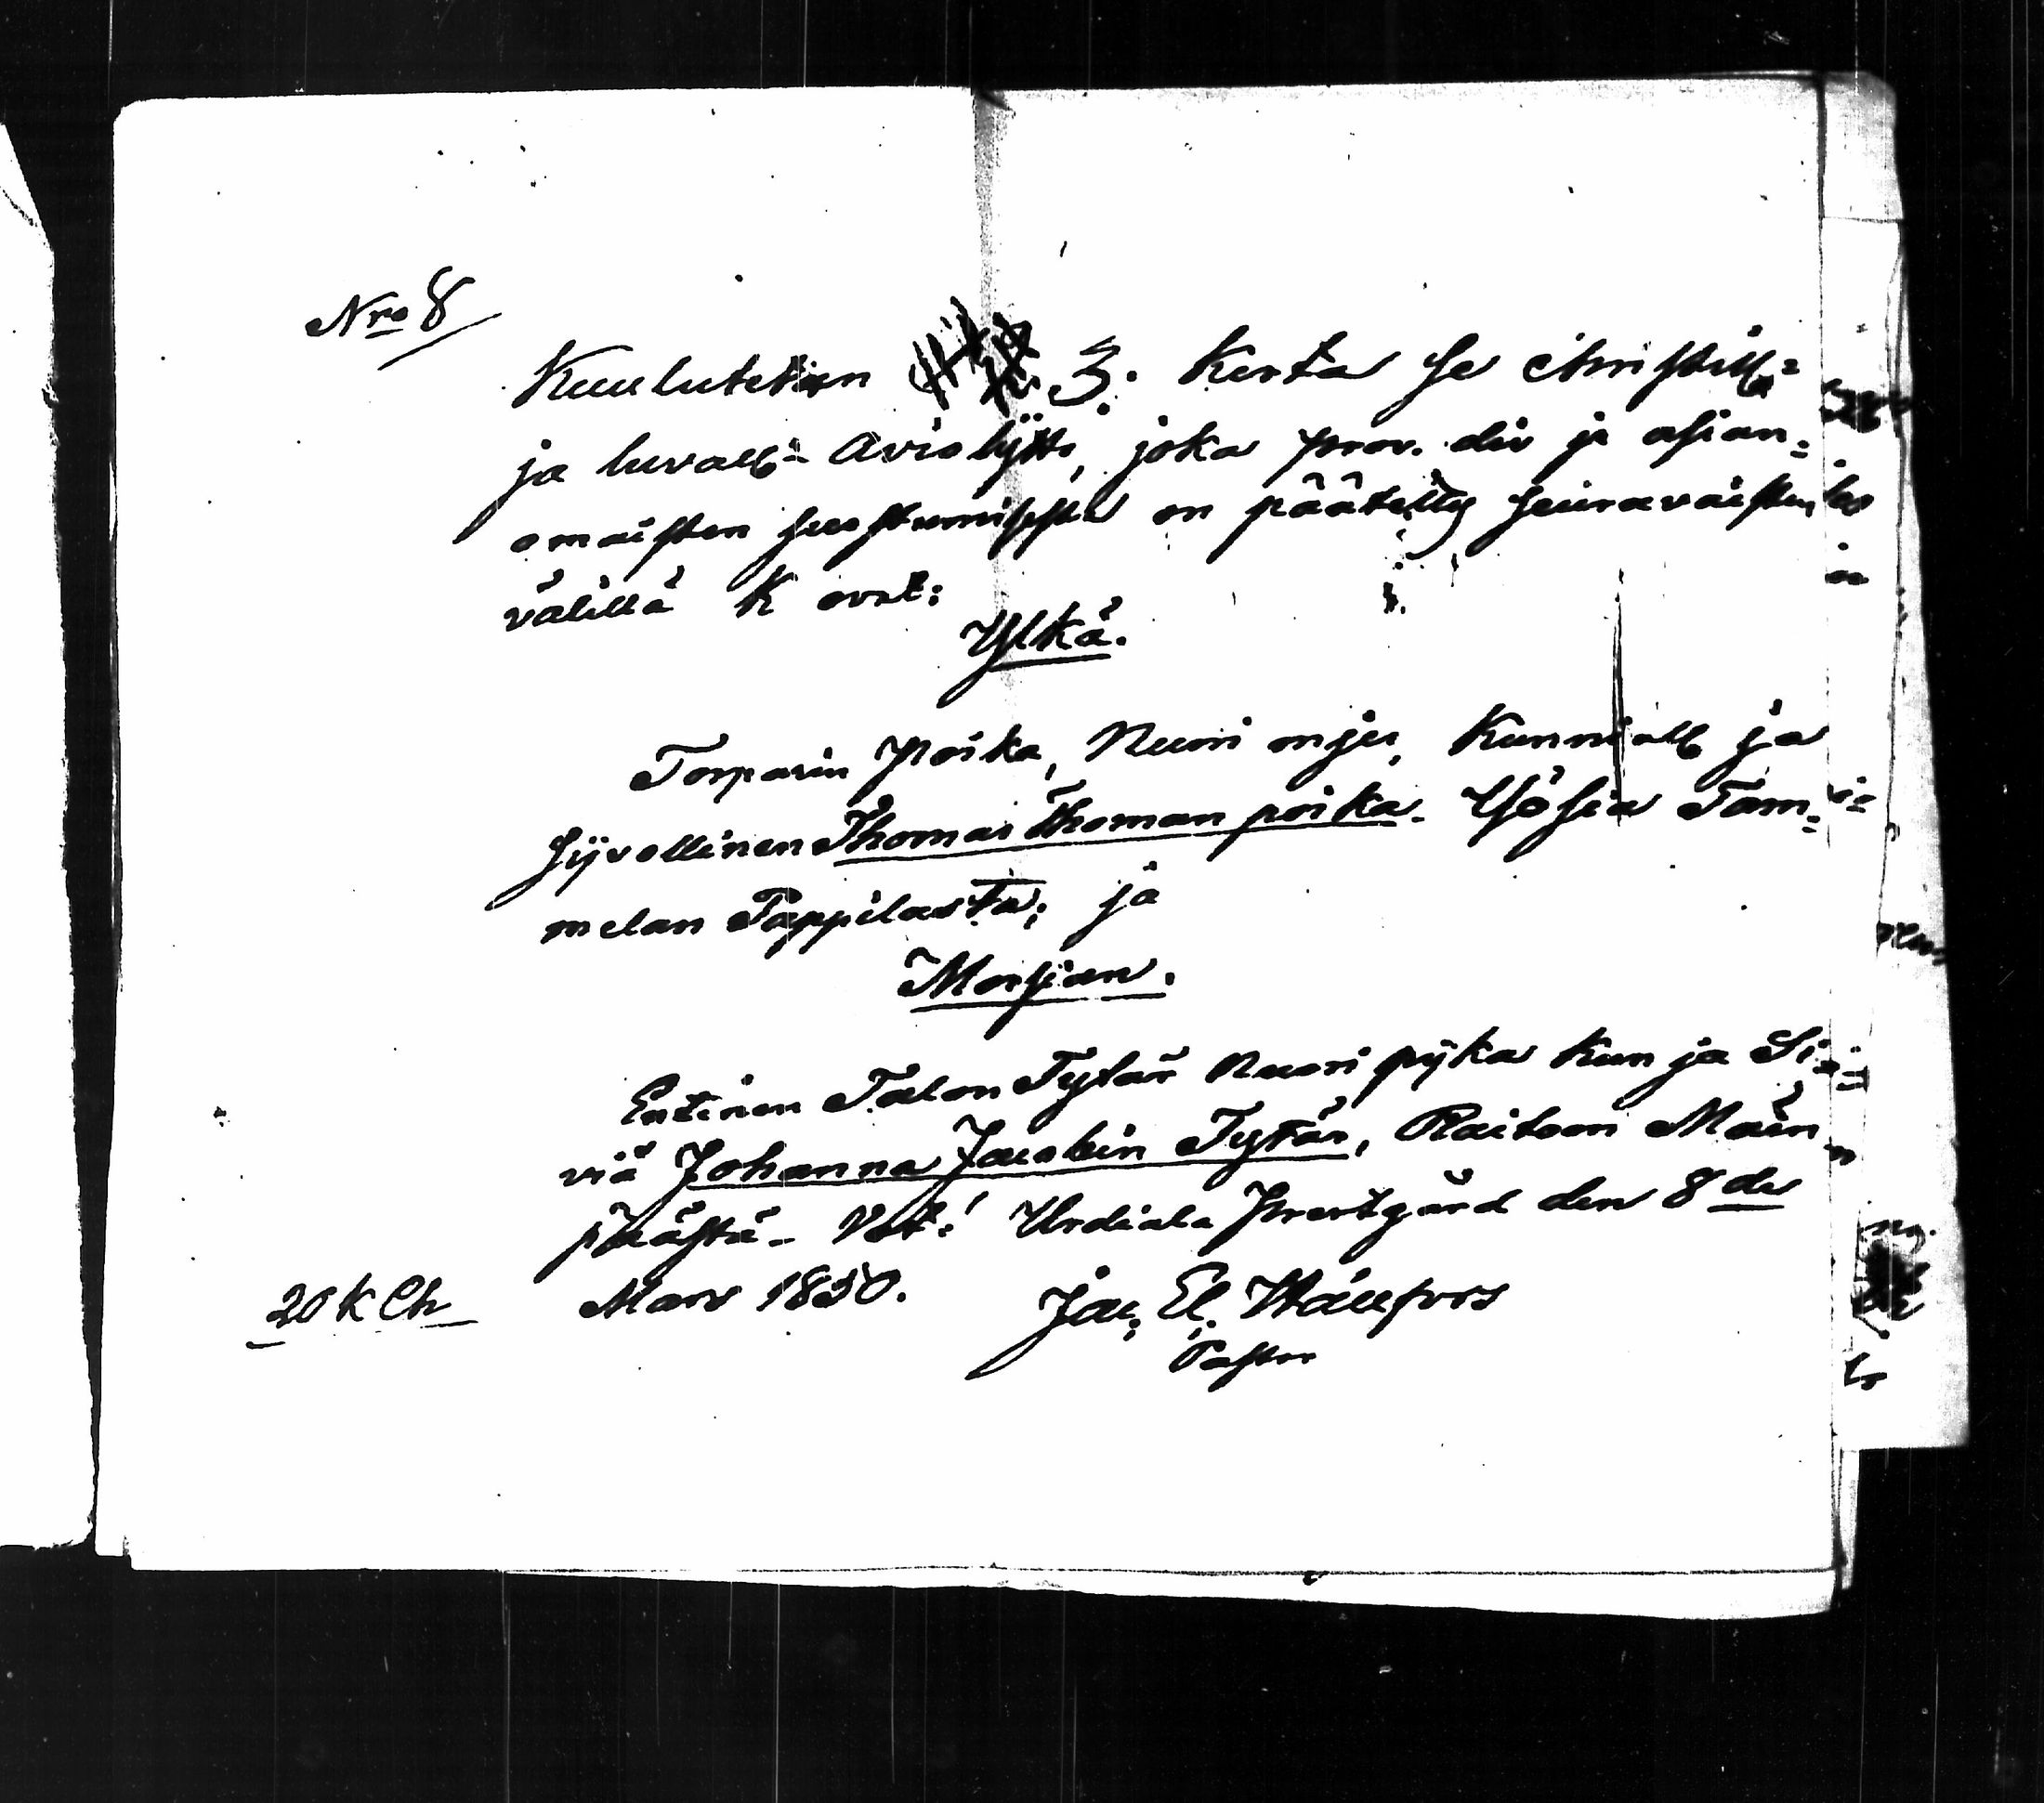 Nro 8
Kuulutetan 3. kerta se christill:
ja luvall: Aviolÿtto, joka prov. div ja asian=
omaisten suostumisesta on päätetty seuravaisten
välillä K ovat:
Ylkä.
Torparin poika, Nuori mjes, Kunniall ja
Siÿvollinen Thomas Thoman poika Tam=
melan Pappilasta; ja
Morsian.
Entinen Talon Tytär Nuori pijka Kun ja Si=
viä Johanna Jacobin Tytär, Raitoon Mäen
päästä. Urdiala Prestgård den 8de
20 k Ch Mars 1830. Jac. El.
Pastor